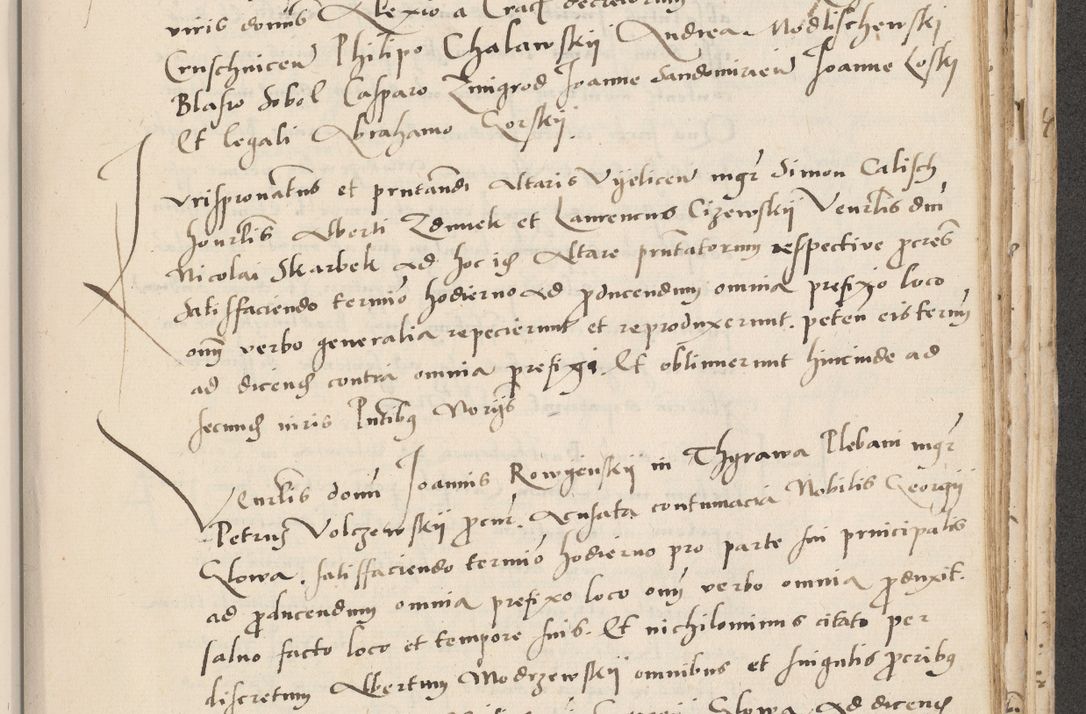 viris domis Alexio a Crac decretorum
Cruschnicen Philipo Chalawskij Andrea Modlischewski
Blasio Sobol Casparo Zmigrod Joanne Sandomirien Joanne Loski
Et legali Abrahamo Gorskij.
Jurispronatus et pntandi Altaris Vijelicen mgr Simon Calisch
honrlis Alberti Zdunek et Laurencius Cizewskij Venrlis dni
Nicolai Skarbek ad hoc id Altare pntatorum respective pcres
Satisfaciendo termio hodierno ad pducendum omnia prefixo loco
oim verbo generalia repecierunt et reproduxerunt. peten eis termm
ad dicend contra omnia prefigi. Et obtinuerunt hincinde ad
secund iuris Pntibus Norijs
Venrlis domi Joannis Rowgienskij in Thgrawa Plebani mgr
Petrus Volczewskij pcur. Acusata contumacia Nobilis Georgij
Glowa. satisfaciendo termio hodierno pro parte sui principalis
ad pducendum omnia prefixo loco oim verbo omnia pduxit.
salvo facto loco et tempore suis. Et nichilominus citato per
discretum Albertum Modrzewskij omnibus et singulis pcribus
Glowa Ad dicend